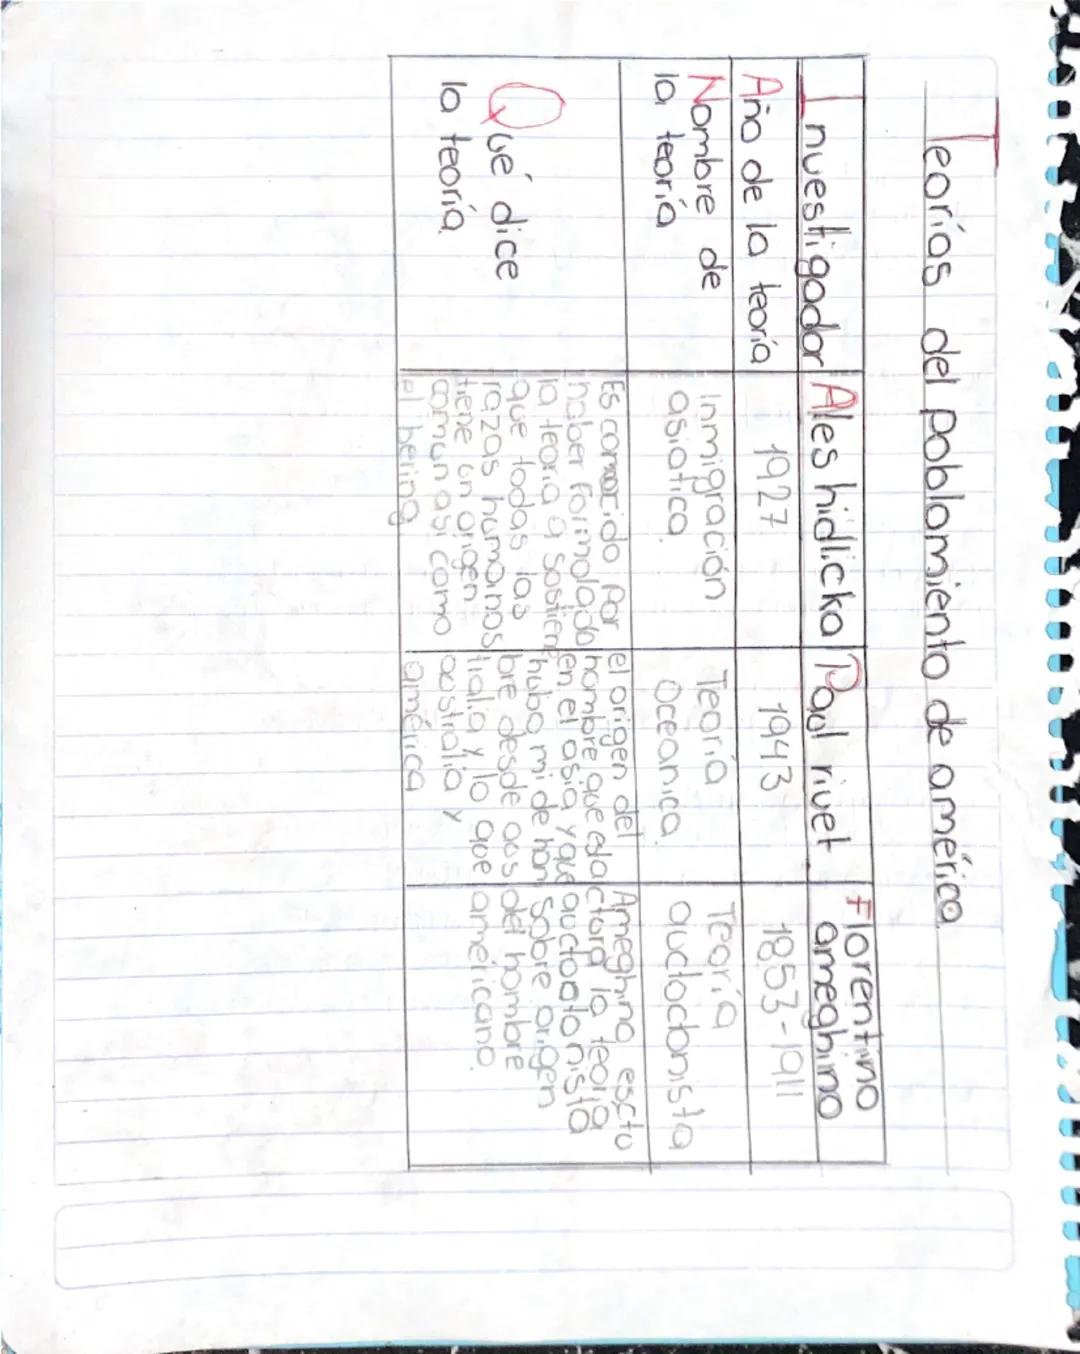 Teorías del poblamiento de américa
Investigador
Ales hidlicka
Paul rivet
Florentino
ameghino
Año de la teoría
1927
1943
1853-1911
Nombre de
la teoría
Inmigración
asiatica
Teoría
Oceanica
Teoría
auctoctonista
Qué dice
la teoría
Es conocido por
haber formolado
la teoria q sostiene
que todas las
razas humanas
tiene un origen
comun asi como
el bering
el origen del
hombre que esta
en el asia y que
hubo mi de hom
bre desde aus
tralia y lo que
aostralia y
américa
Ameghino escto
ctura la teoria
auctoatonista
sobre origen
del hombre
américano